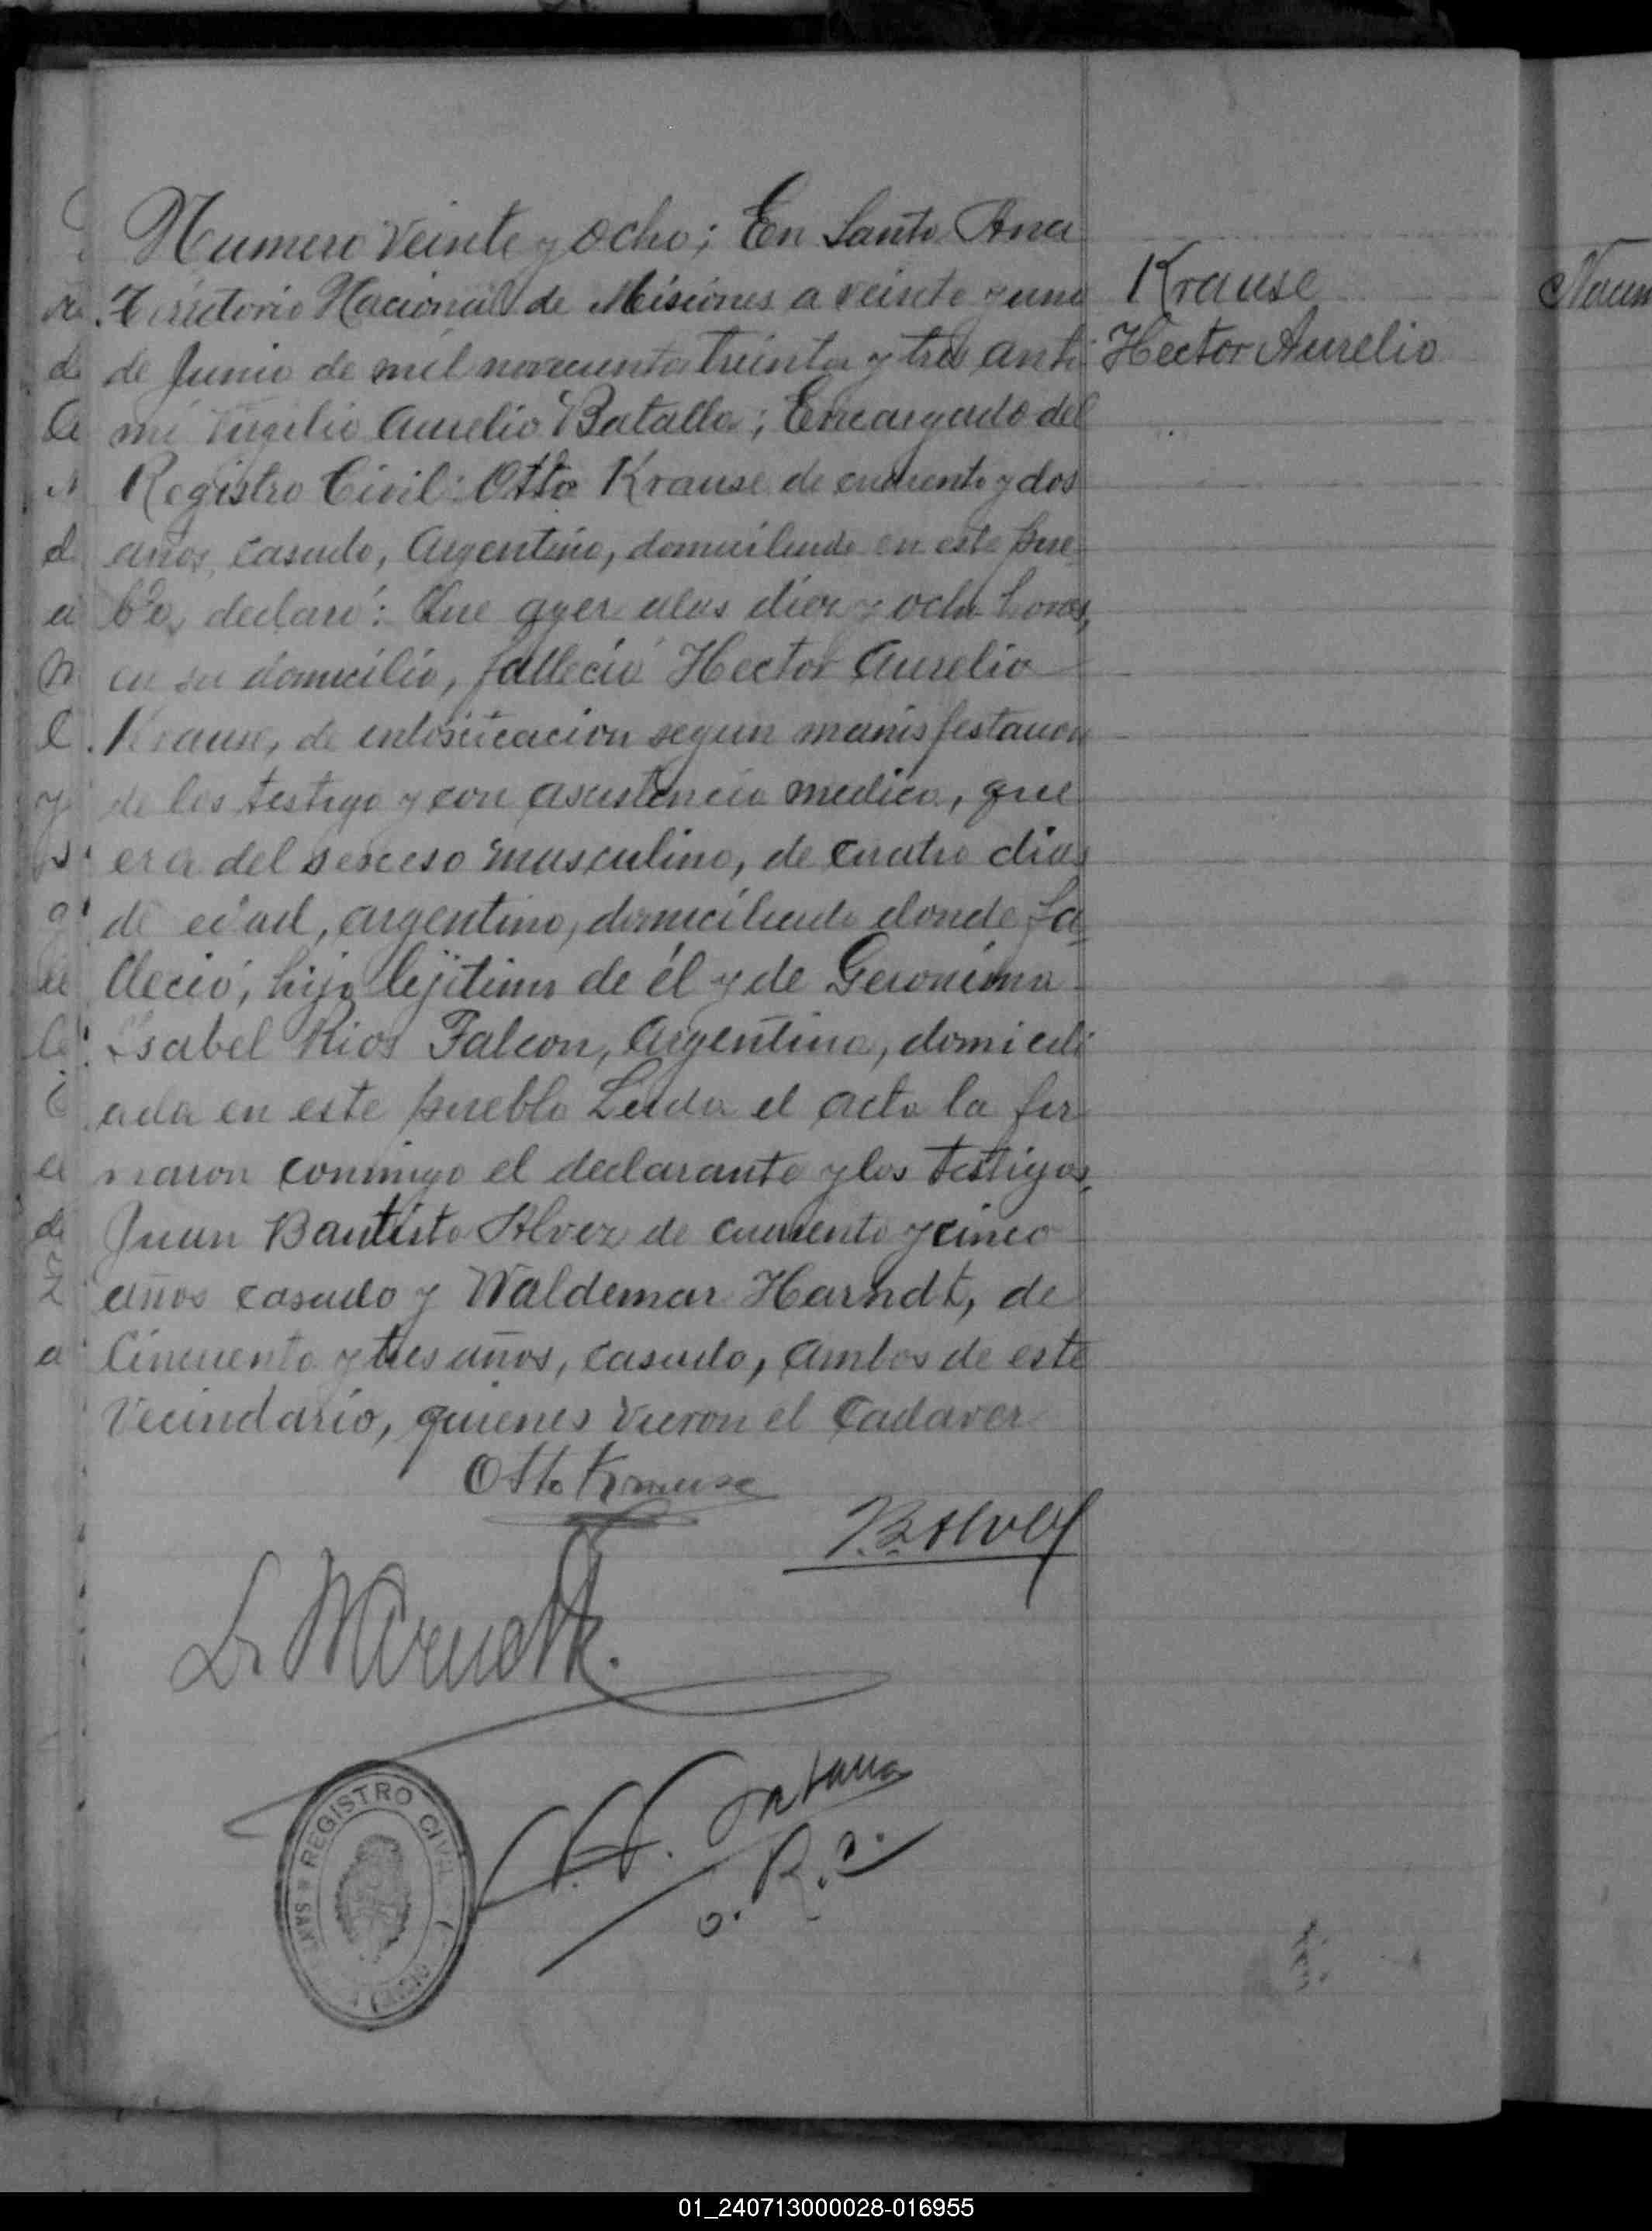 Numero veinte y ocho; En Santa Ana
Territorio Nacional de Misiones a veinte y uno
de Junio de mil novecientos treinta y tres ante
mi Virgilio Aurelio Batalla; Encargado del
Registro Civil: Otto Krause de cuarenta y dos
años, casado, Argentino, domiciliado en este pue-
blo, declaró: Que ayer a las diez y ocho horas,
en su domicilio, falleció Hector Aurelio
Krause, de intoxicacion segun manisfestacion
de los testigo y con asistencia medica, que
era del sexceso masculino, de cuatro dias
de edad, argentino, domiciliado donde fa-
lleció, hijo lejitimo de él y de Geronima
Isabel Rios Falcon, Argentina, domicili
ada en este pueblo Leida el acta la fir
maron conmigo el declarante y los testigos,
Juan Bautista Alvez de cuarenta y cinco
años casado y Waldemar Harndt, de
Cincuenta y tres años, casado, ambos de este
Vecindario, quienes vieron el Cadaver
Krause
Hector Aurelio
Otto Krause
J.B. Alvez
o. R. C.
REGISTRO CIVIL
SANTA
01_240713000028-016955